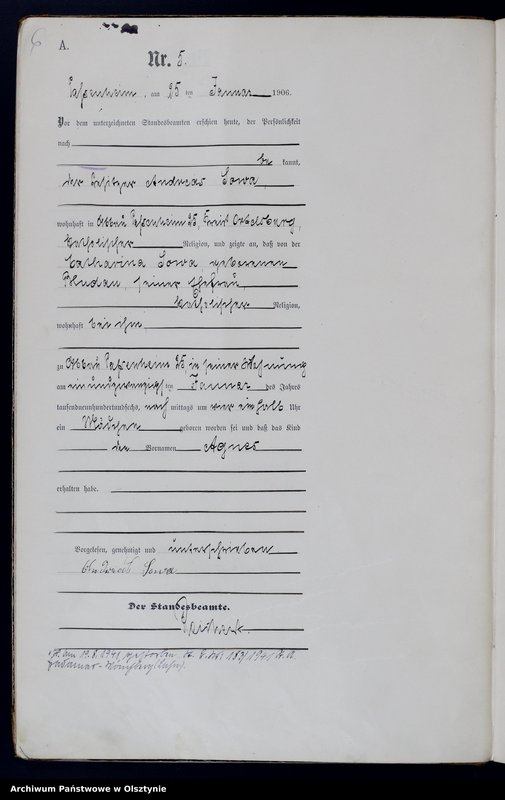 6
A.
Nr. 5.
Passenheim, am 25 ten Januar 1906.
Vor dem unterzeichneten Standesbeamten erschien heute, der Persönlichkeit
nach
be kannt,
der Besitzer Andreas Sowa,
wohnhaft in Abbau Passenheim 25, Kreis Ortelsburg,
katholischer Religion, und zeigte an, daß von der
Catharina Sowa geborenen
seiner Ehefrau
katholischer Religion,
wohnhaft bei ihm
zu Abbau Passenheim 25, in seiner Wohnung
am ein und zwanzigsten Januar des Jahres
tausendneunhundertundsechs, nach mittags um vier ein halb Uhr
ein Mädchen geboren worden sei und daß das Kind
den Vornamen Agnes
erhalten habe.
Vorgelesen, genehmigt und unterschrieben
Andreas Sowa
Der Standesbeamte.
am 19.8.1941 gestorben
Archiwum Państwowe w Olsztynie